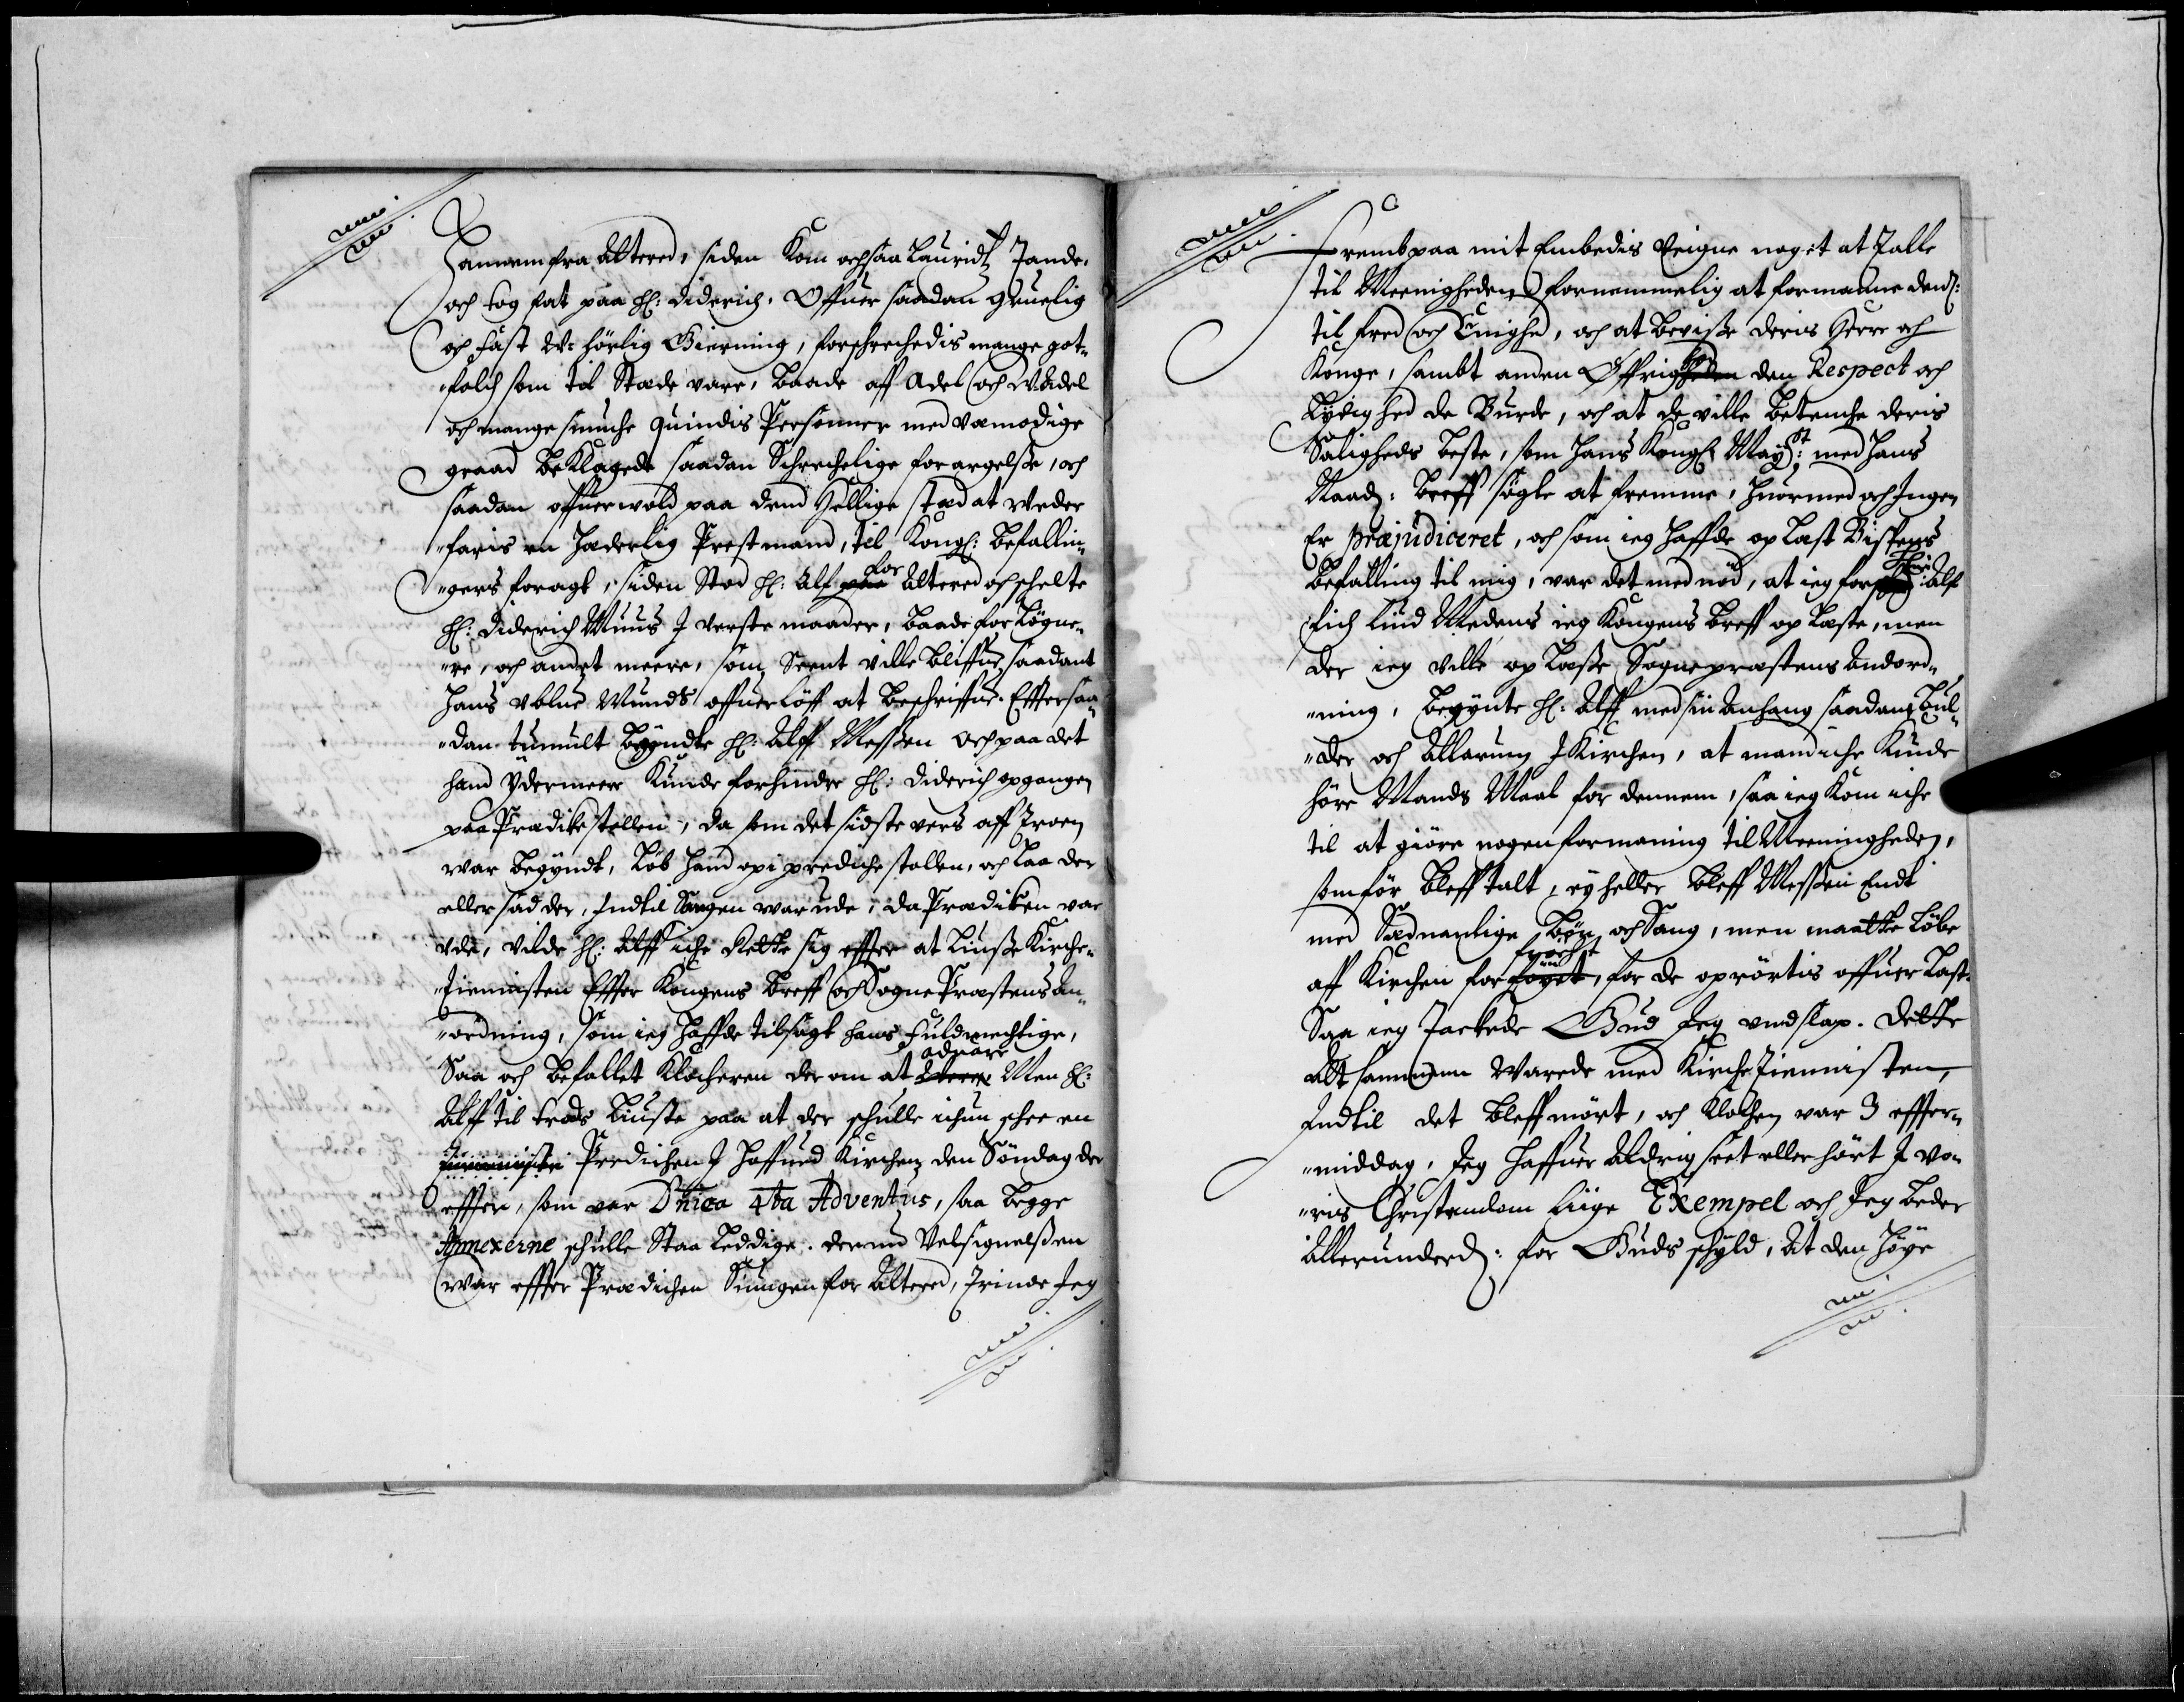 hannem fra Altered, siden Kom ochsaa Lauridtz Jande,
och tog fat paa H: Diderich. Offuer saadan gruelig
och fast U-hörlig Gierning, forschrechedis mange got¬
folch som til Stede vare, baade aff Adel och Uadel
och mange smuche Quindis Personner med vemodige
graad beklagede saadan Schrechelige forargelsse, och
saadan offuerwold paa dend Hellige sted at weder
faris en Hæderlig Prestmand, til Kongl: Befallin¬
gers foragt, siden Stod H: Alf for Altered och schelte
H: Diderich Muus I verste maader, baade for Lögne¬
re, och andet meere, som Seent ville bliffue saadant
Hans Ublue Munds offuerlöff at beschriffue. Effter saa¬
dan tumult begyndte H: Alff Messen och paa det
hand ydermeere kunde forhindre H: Diderich opgangen
paa Prædikestollen, da som det sidste vers aff Troen
war begyndt, löb hand op i predichestollen, och laa der
eller sad der, Indtil Sangen war ude, da Prædiken var
ude, vilde H: Alff iche Rette sig effter at liusse Kirche¬
Tiennisten Effter Kongens breff och Sogne Præstens An¬
ordning, som ieg haffde tilsagt hans fuldmechtige,
Saa och befallet Klocheren der om at advare Men H:
Alff til trods liuste paa at der schulle ichun schee en
Predichen I Hoffued Kirchen den Söndag der
effter, som var Dnica 4ta Adventus, saa begge
Annexerne schulle Staa leddige. der nu Velsignelssen
war effter Prædichen Siungen for Altered, Trinde Jeg
Fremb paa mit Embedis Veigne noget at Talle
til Meenigheden fornemmelig at formanne dend:
til fred och Enighed, och at bevisse deris Herre och
Konge, sambt anden Øffrighed den Respect och
Lydighed de burde, och at de ville betenche deris
Saligheds beste, som Hans Kongl: May:tt med Hans
Naad: breff sögte at fremme, huormed och Ingen
Er præjudiceret, och som ieg haffde op læst Bispens
befalling til mig, var det med nöd, at ieg for H: Alf
fich liud Medens ieg Kongens breff op læste, men
der ieg ville op læsse Sogneprestens Andord¬
ning, begynte H: Alff med sin Anhang saadan bul¬
der och Allarum I Kirchen, at mand iche kunde
höre Mands Maal for dennem, saa ieg kom iche
til at giöre nogen formaning til Meeningheden,
som för bleff talt, ey heller bleff Messen Endt
med Sædvanlige bön och Sang, men maatte löbe
aff Kirchen for fryct, for de oprörtis offuerlast.
Saa ieg Tackede Gud Jeg undslap. dette
alt sammen Warede med Kirche Tiennisten,
Indtil det bleff mört, och Klochen var 3 effter¬
middag, Jeg haffuer Aldrig seet eller hört I vo¬
ris Christendom liige Exempel och Jeg beder
Allerunderd: for Guds schyld, at den höye